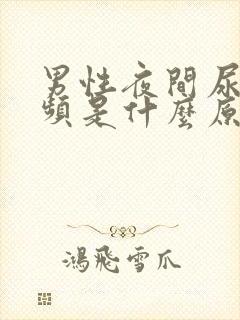 男性夜間尿
頻是什麼原
鴻飛雪爪